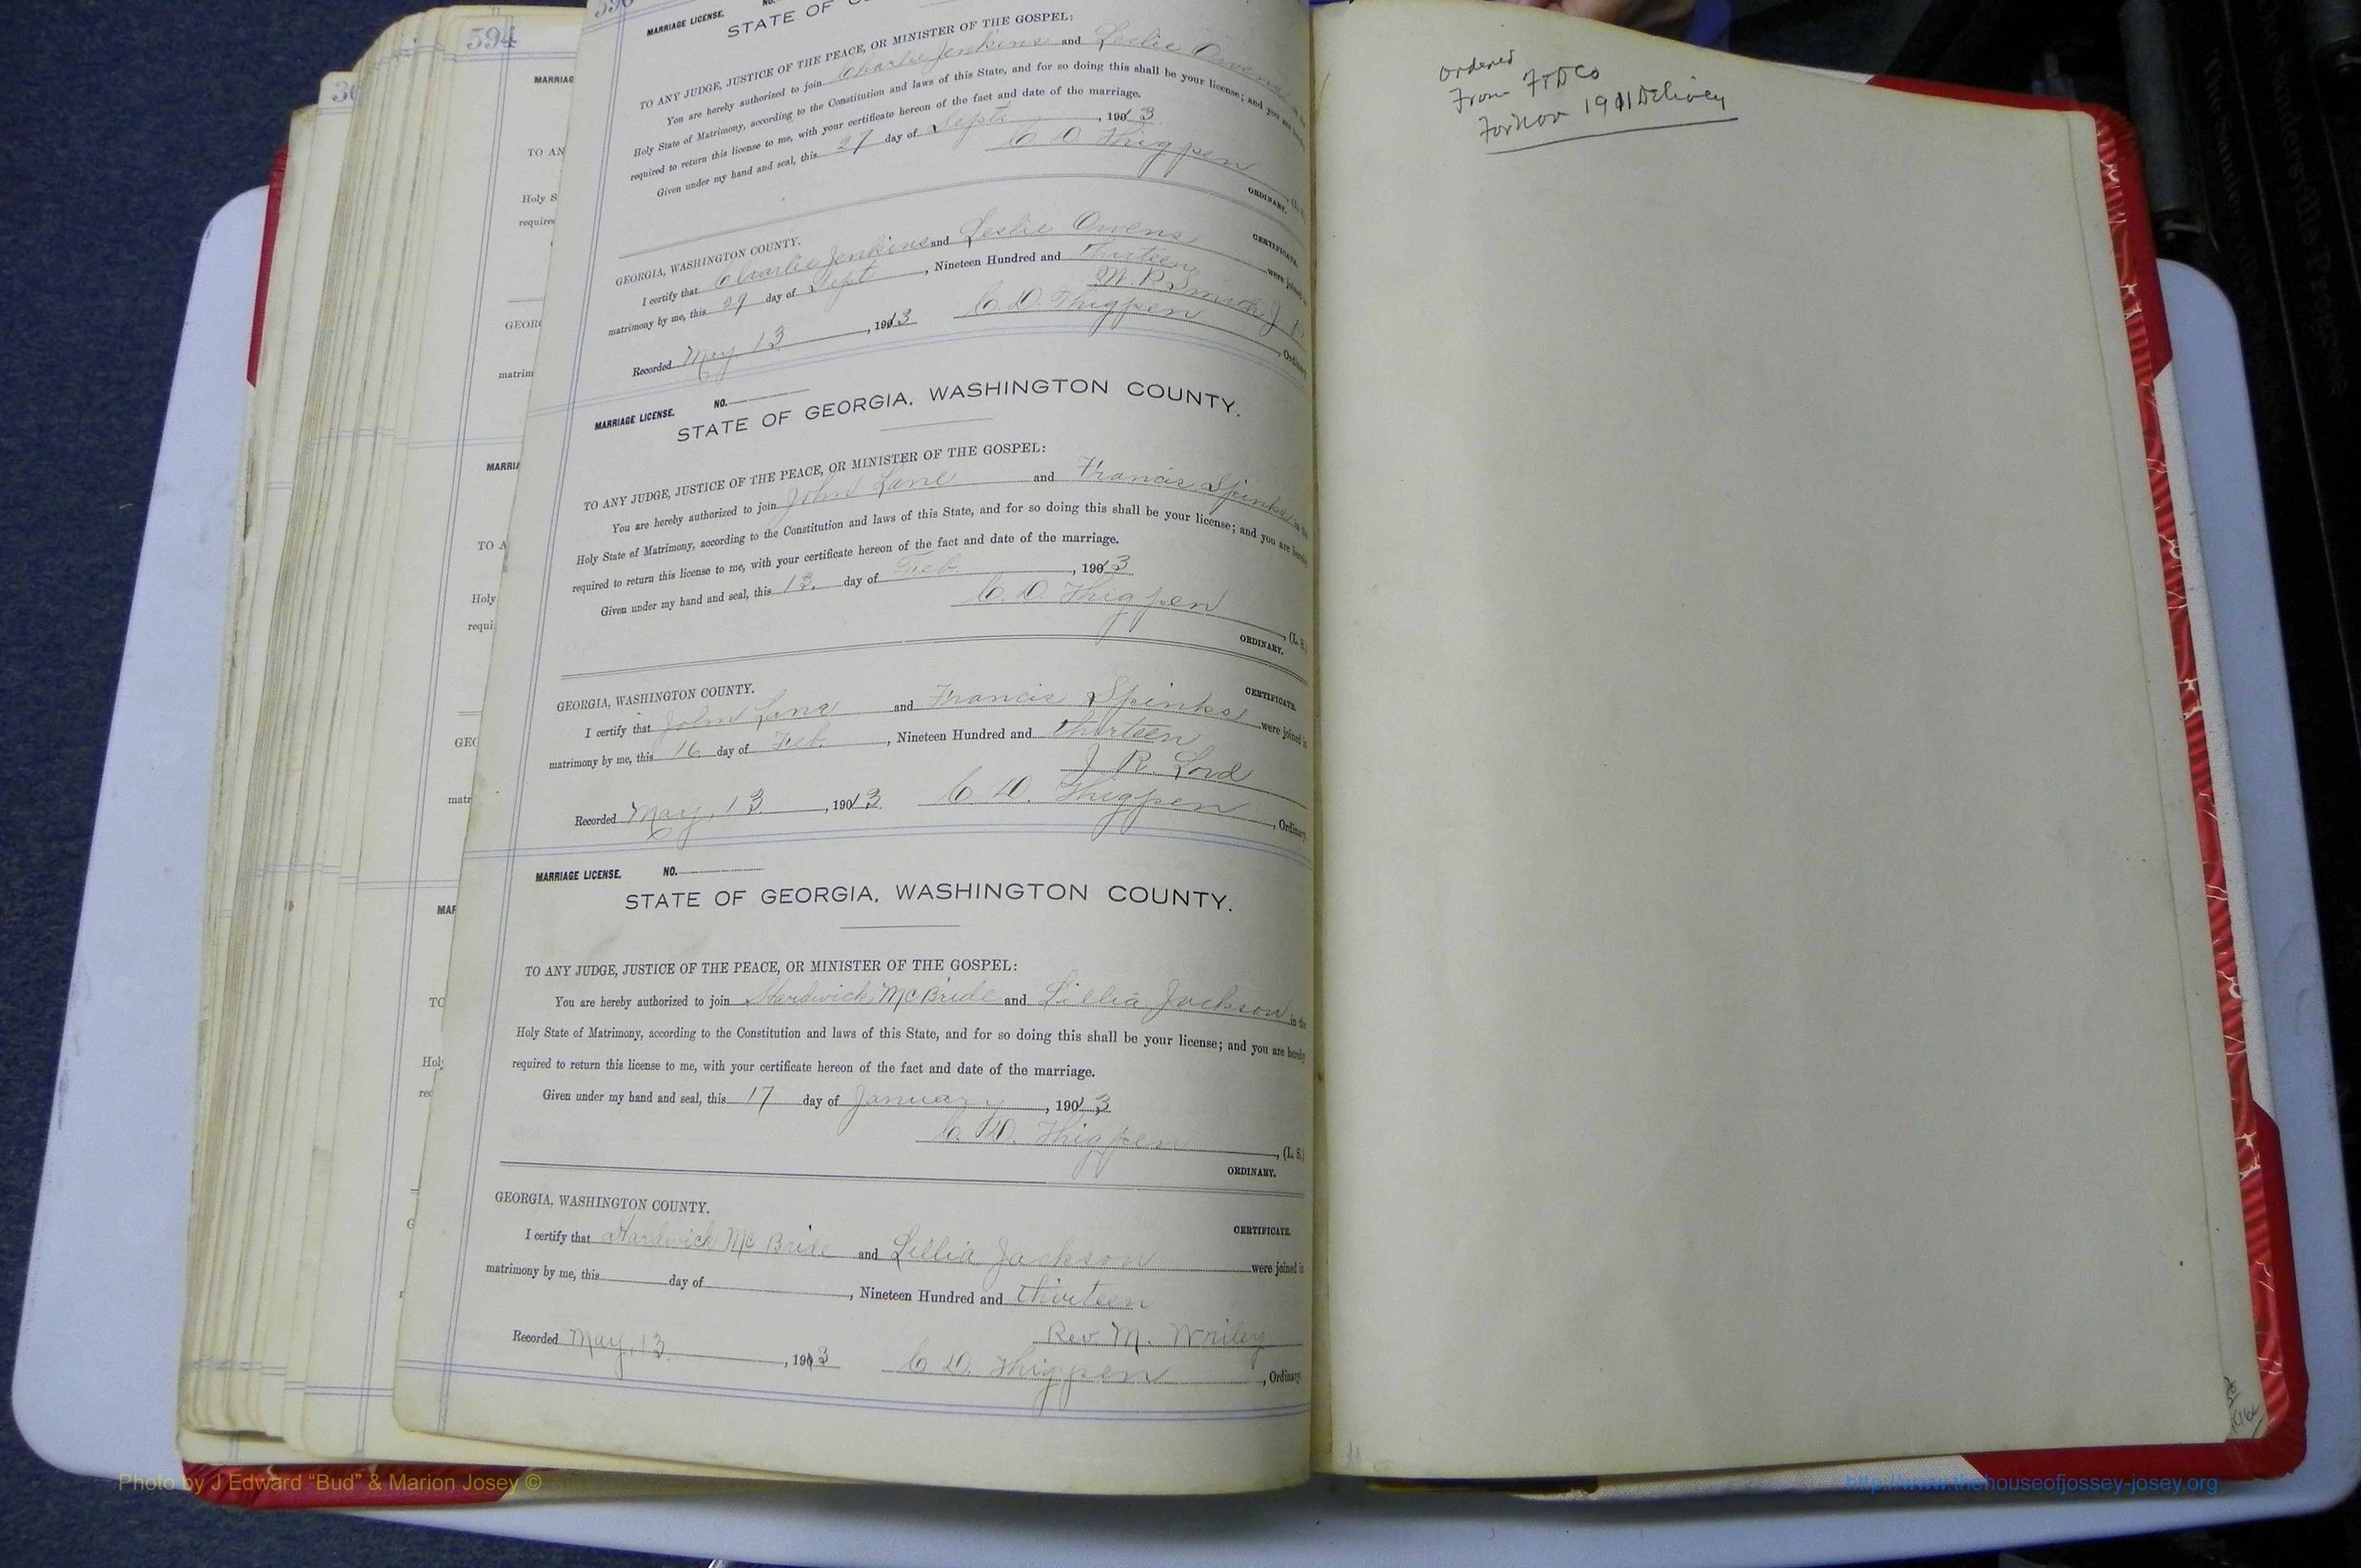 594
MARRIAGE LICENSE. NO.
STATE OF
TO ANY JUDGE, JUSTICE OF THE PEACE, OR MINISTER OF THE GOSPEL:
You are hereby authorized to join Charlie Jenkins and Leslie Owens
Holy State of Matrimony, according to the Constitution and laws of this State, and for so doing this shall be your license; and you are
required to return this license to me, with your certificate hereon of the fact and date of the marriage.
Given under my hand and seal, this 27 day of Sept. , 1913
C. D. Thigpen
ORDINARY.
GEORGIA, WASHINGTON COUNTY. CERTIFICATE.
I certify that Charlie Jenkins and Leslie Owens were joined in
matrimony by me, this 29 day of Sept , Nineteen Hundred and thirteen
Recorded May, 13 , 1913 C. D. Thigpen , Ordinary
MARRIAGE LICENSE. NO.
STATE OF GEORGIA, WASHINGTON COUNTY.
TO ANY JUDGE, JUSTICE OF THE PEACE, OR MINISTER OF THE GOSPEL:
You are hereby authorized to join John Lane and Francis Spinks in the
Holy State of Matrimony, according to the Constitution and laws of this State, and for so doing this shall be your license; and you are hereby
required to return this license to me, with your certificate hereon of the fact and date of the marriage.
Given under my hand and seal, this 13. day of Feb. , 1913
C. D. Thigpen , (L. S.)
ORDINARY.
GEORGIA, WASHINGTON COUNTY. CERTIFICATE.
I certify that John Lane and Francis Spinks were joined in
matrimony by me, this 16 day of Feb. , Nineteen Hundred and thirteen
J. R. Lord
Recorded May, 13 , 1913. C. D. Thigpen , Ordinary
MARRIAGE LICENSE. NO.
STATE OF GEORGIA, WASHINGTON COUNTY.
TO ANY JUDGE, JUSTICE OF THE PEACE, OR MINISTER OF THE GOSPEL:
You are hereby authorized to join Hardwick McBride and Lillia Jackson in the
Holy State of Matrimony, according to the Constitution and laws of this State, and for so doing this shall be your license; and you are hereby
required to return this license to me, with your certificate hereon of the fact and date of the marriage.
Given under my hand and seal, this 17 day of January , 1913.
C. D. Thigpen , (L. S.)
ORDINARY.
GEORGIA, WASHINGTON COUNTY. CERTIFICATE.
I certify that Hardwick McBride and Lillia Jackson were joined in
matrimony by me, this day of , Nineteen Hundred and thirteen
Rev. M. Wriley
Recorded May, 13. , 1913 C. D. Thigpen , Ordinary.
Ordered
From
For Nov 1911 Delivery
Photo by J Edward “Bud” & Marion Josey ©
http://www.thehouseofjossey-josey.org